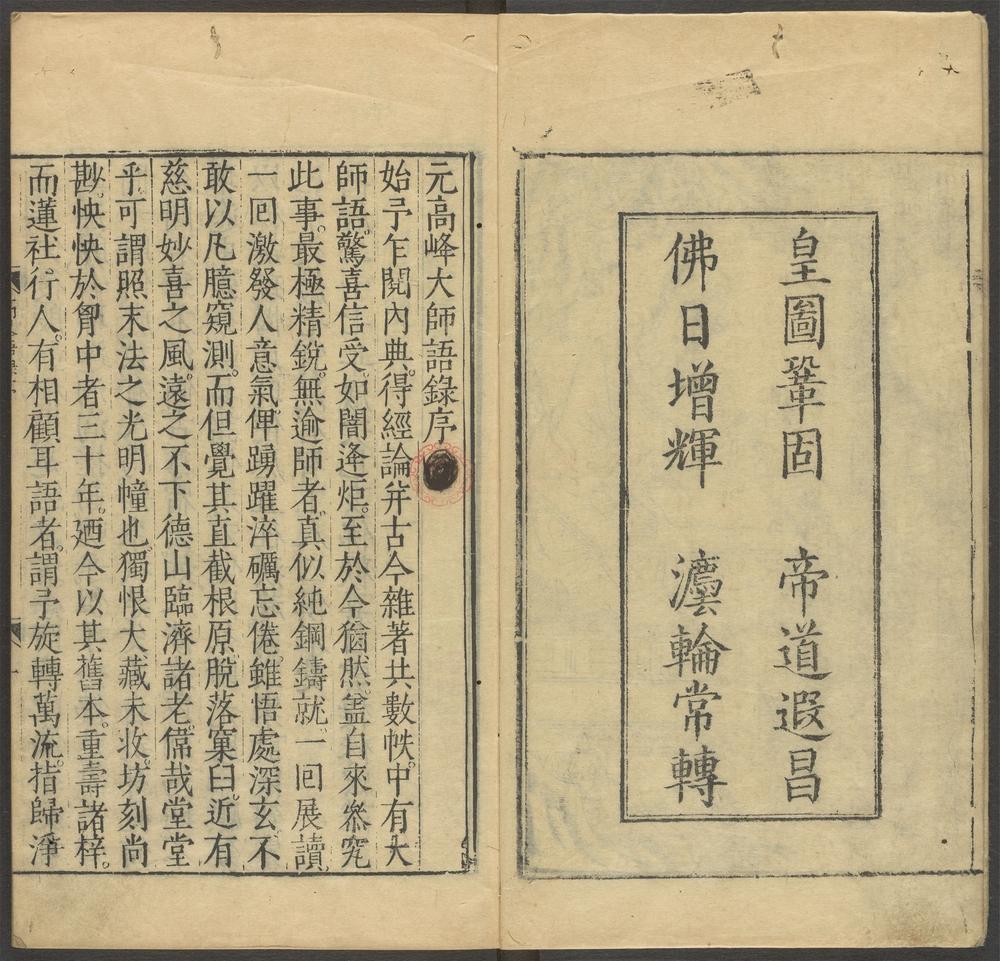 皇圖鞏固　帝道遐昌
佛日增輝　灋輪常轉
元高峰大師語錄序
始予乍閱內典。得經論并古今雜著共數帙。中有大
師語。驚喜信受。如闇逢炬。至於今猶然。盖自來叅究
此事。最極精銳。無逾師者。真似純鋼鑄就。一回展讀。
一回激發人意氣。俾踴躍淬礪忘倦。雖悟處深玄。不
敢以凡臆窺測。而但覺其直截根原。脫落窠臼。近有
慈明妙喜之風。遠之不下德山臨濟諸老。偉哉堂堂
乎。可謂照末法之光明幢也。獨恨大藏未收。坊刻尚
尠。怏怏於胷中者三十年。廼今以其舊本。重壽諸梓。
而蓮社行人。有相顧耳語者。謂予旋轉萬流。指歸淨